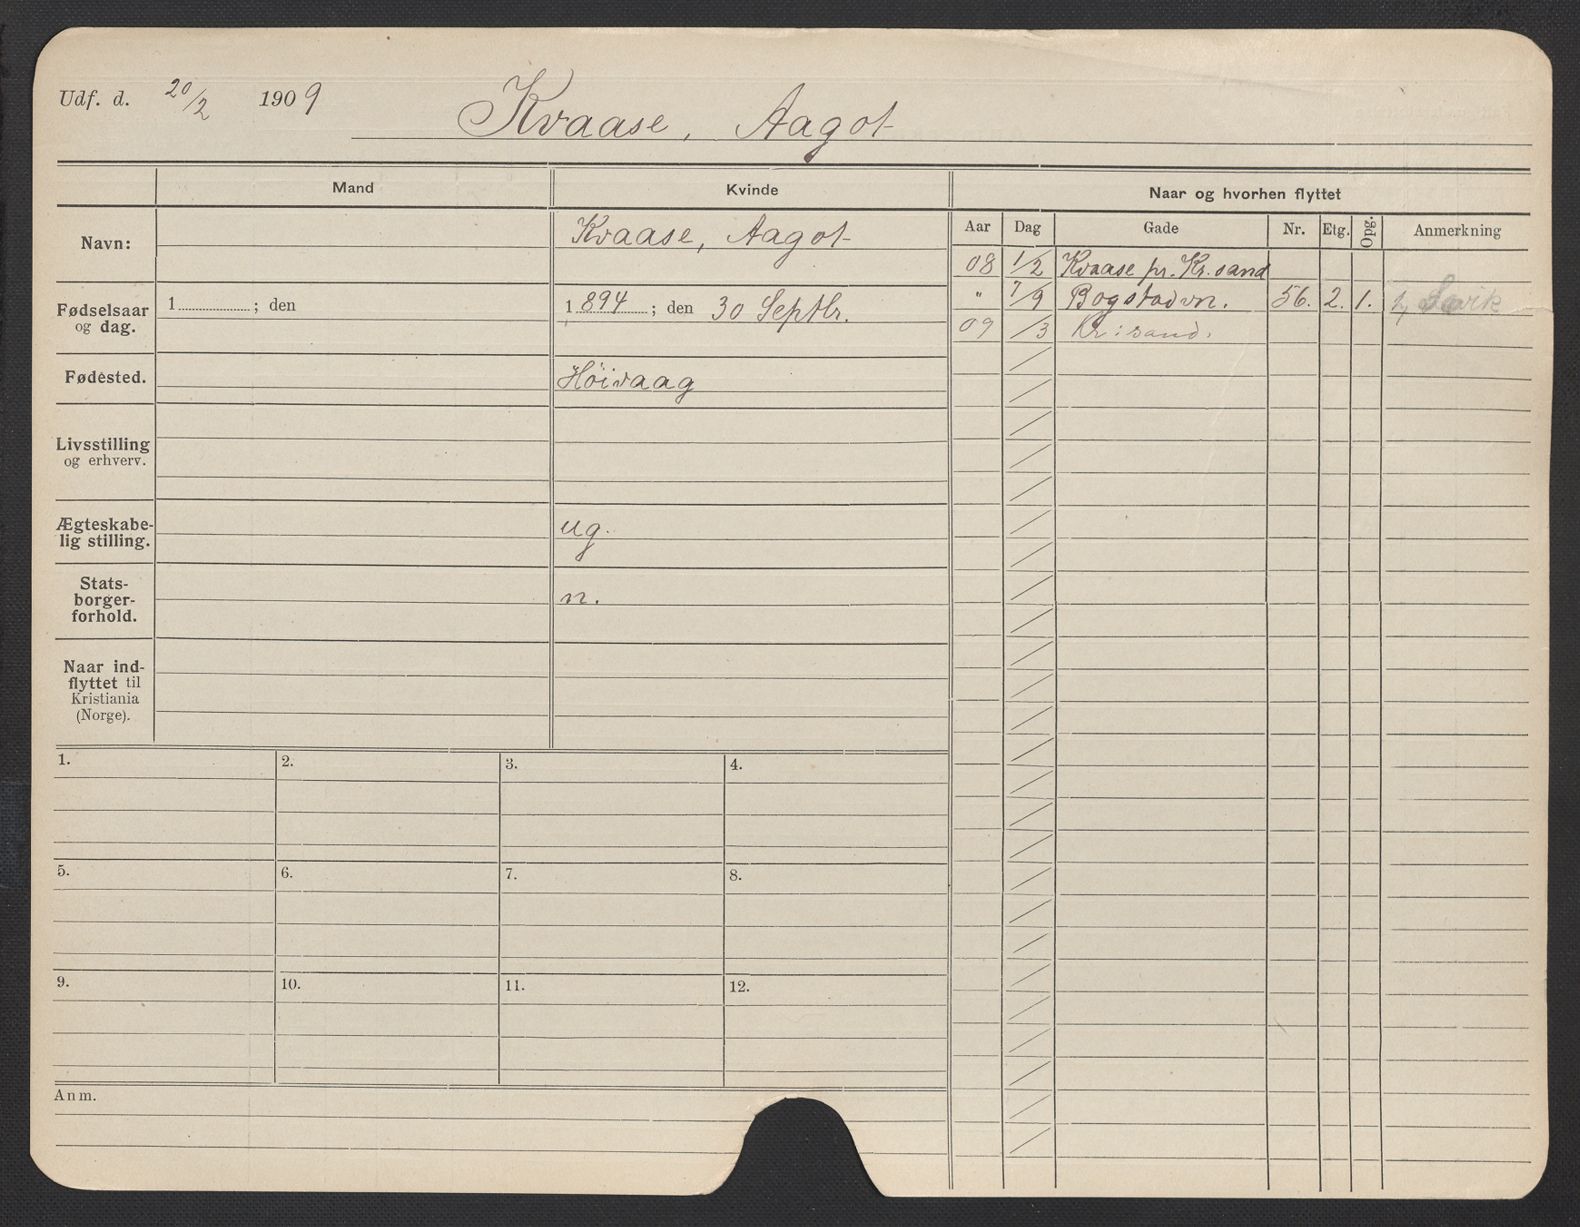 Udf. d. 20/2 1909 Kvaase, Aagot
Mand
Kvinde
Naar og hvorhen flyttet
Aar Dag Gade Nr. Etg. Opg. Anmerkning
Navn: Kvaase, Aagot
08 1/2 Kvaase pr. Kr.sand
" 7/9 Bogstadvn. 56. 2. 1.
09 /3 Kr:sand.
Fødselsaar
og dag.
1 ; den
1 894 ; den 30 Septbr.
Fødested. Höivaag
Livsstilling
og erhverv.
Ægteskabe-
lig stilling. ug.
Stats-
borger-
forhold. n.
Naar ind-
flyttet til
Kristiania
(Norge).
1. 2. 3. 4.
5. 6. 7. 8.
9. 10. 11. 12.
Anm.